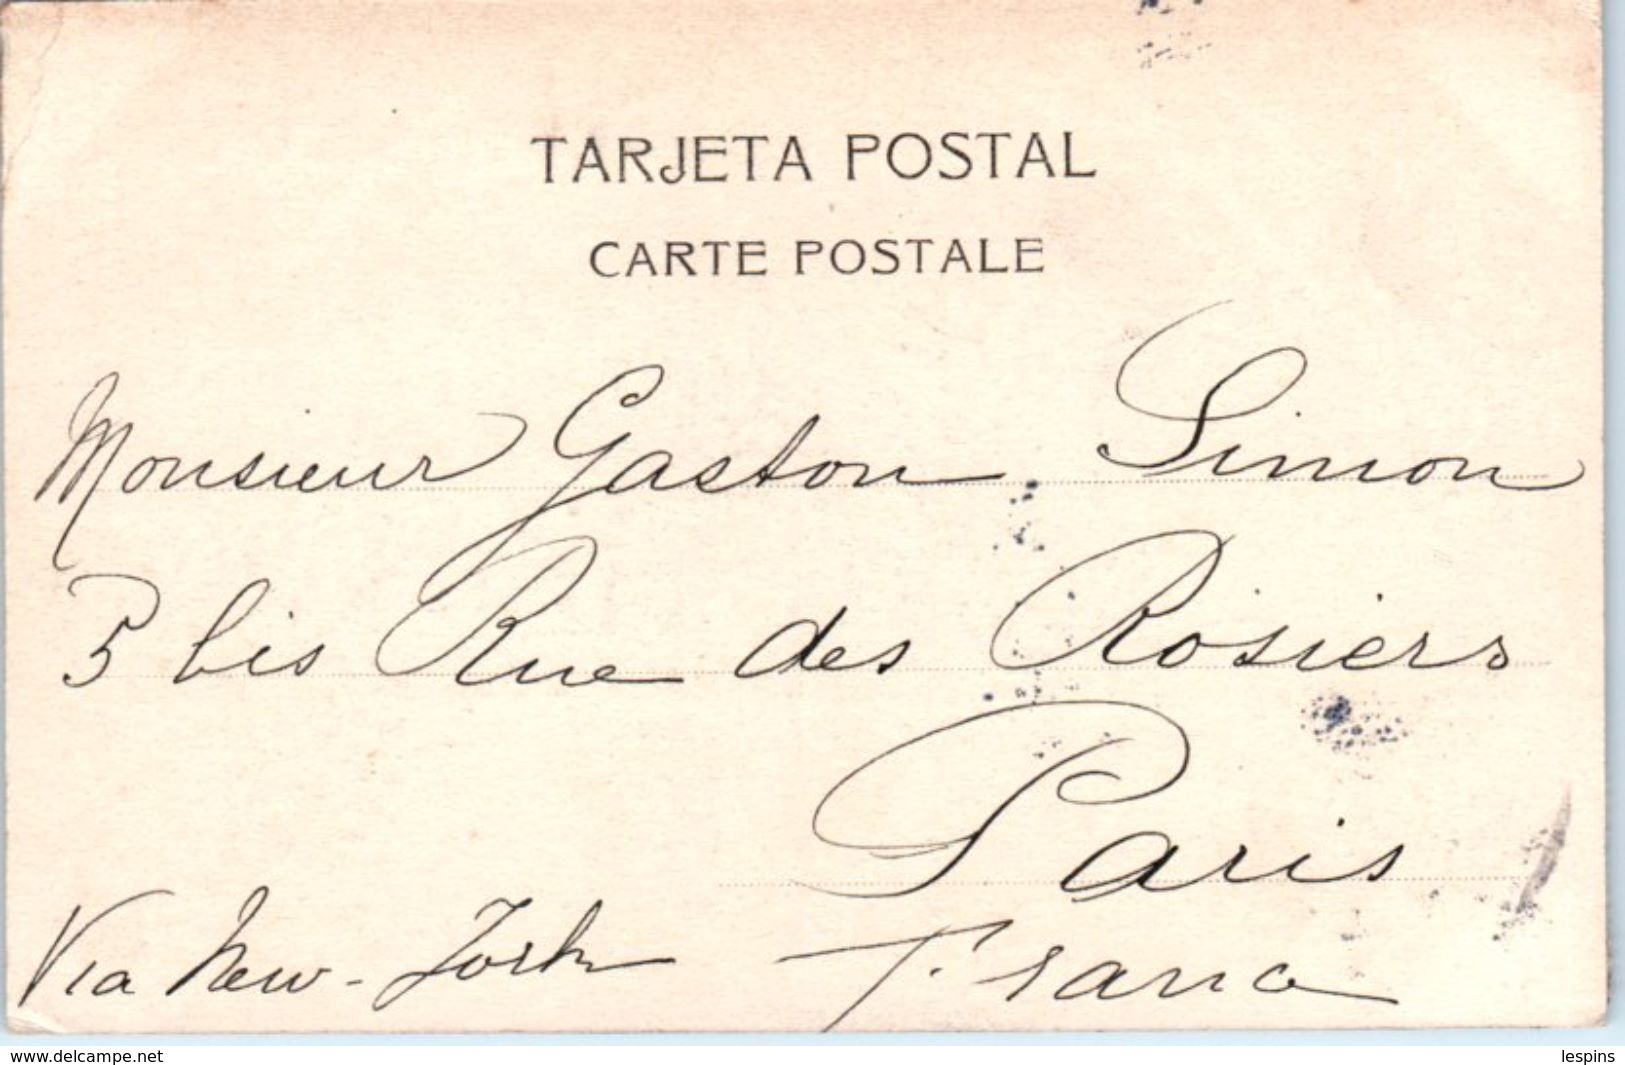 TARJETA POSTAL
CARTE POSTALE
Monsieur Gaston Simon
5 bis Rue des Rosiers
Paris
Via New-York France
www.delcampe.net lespins